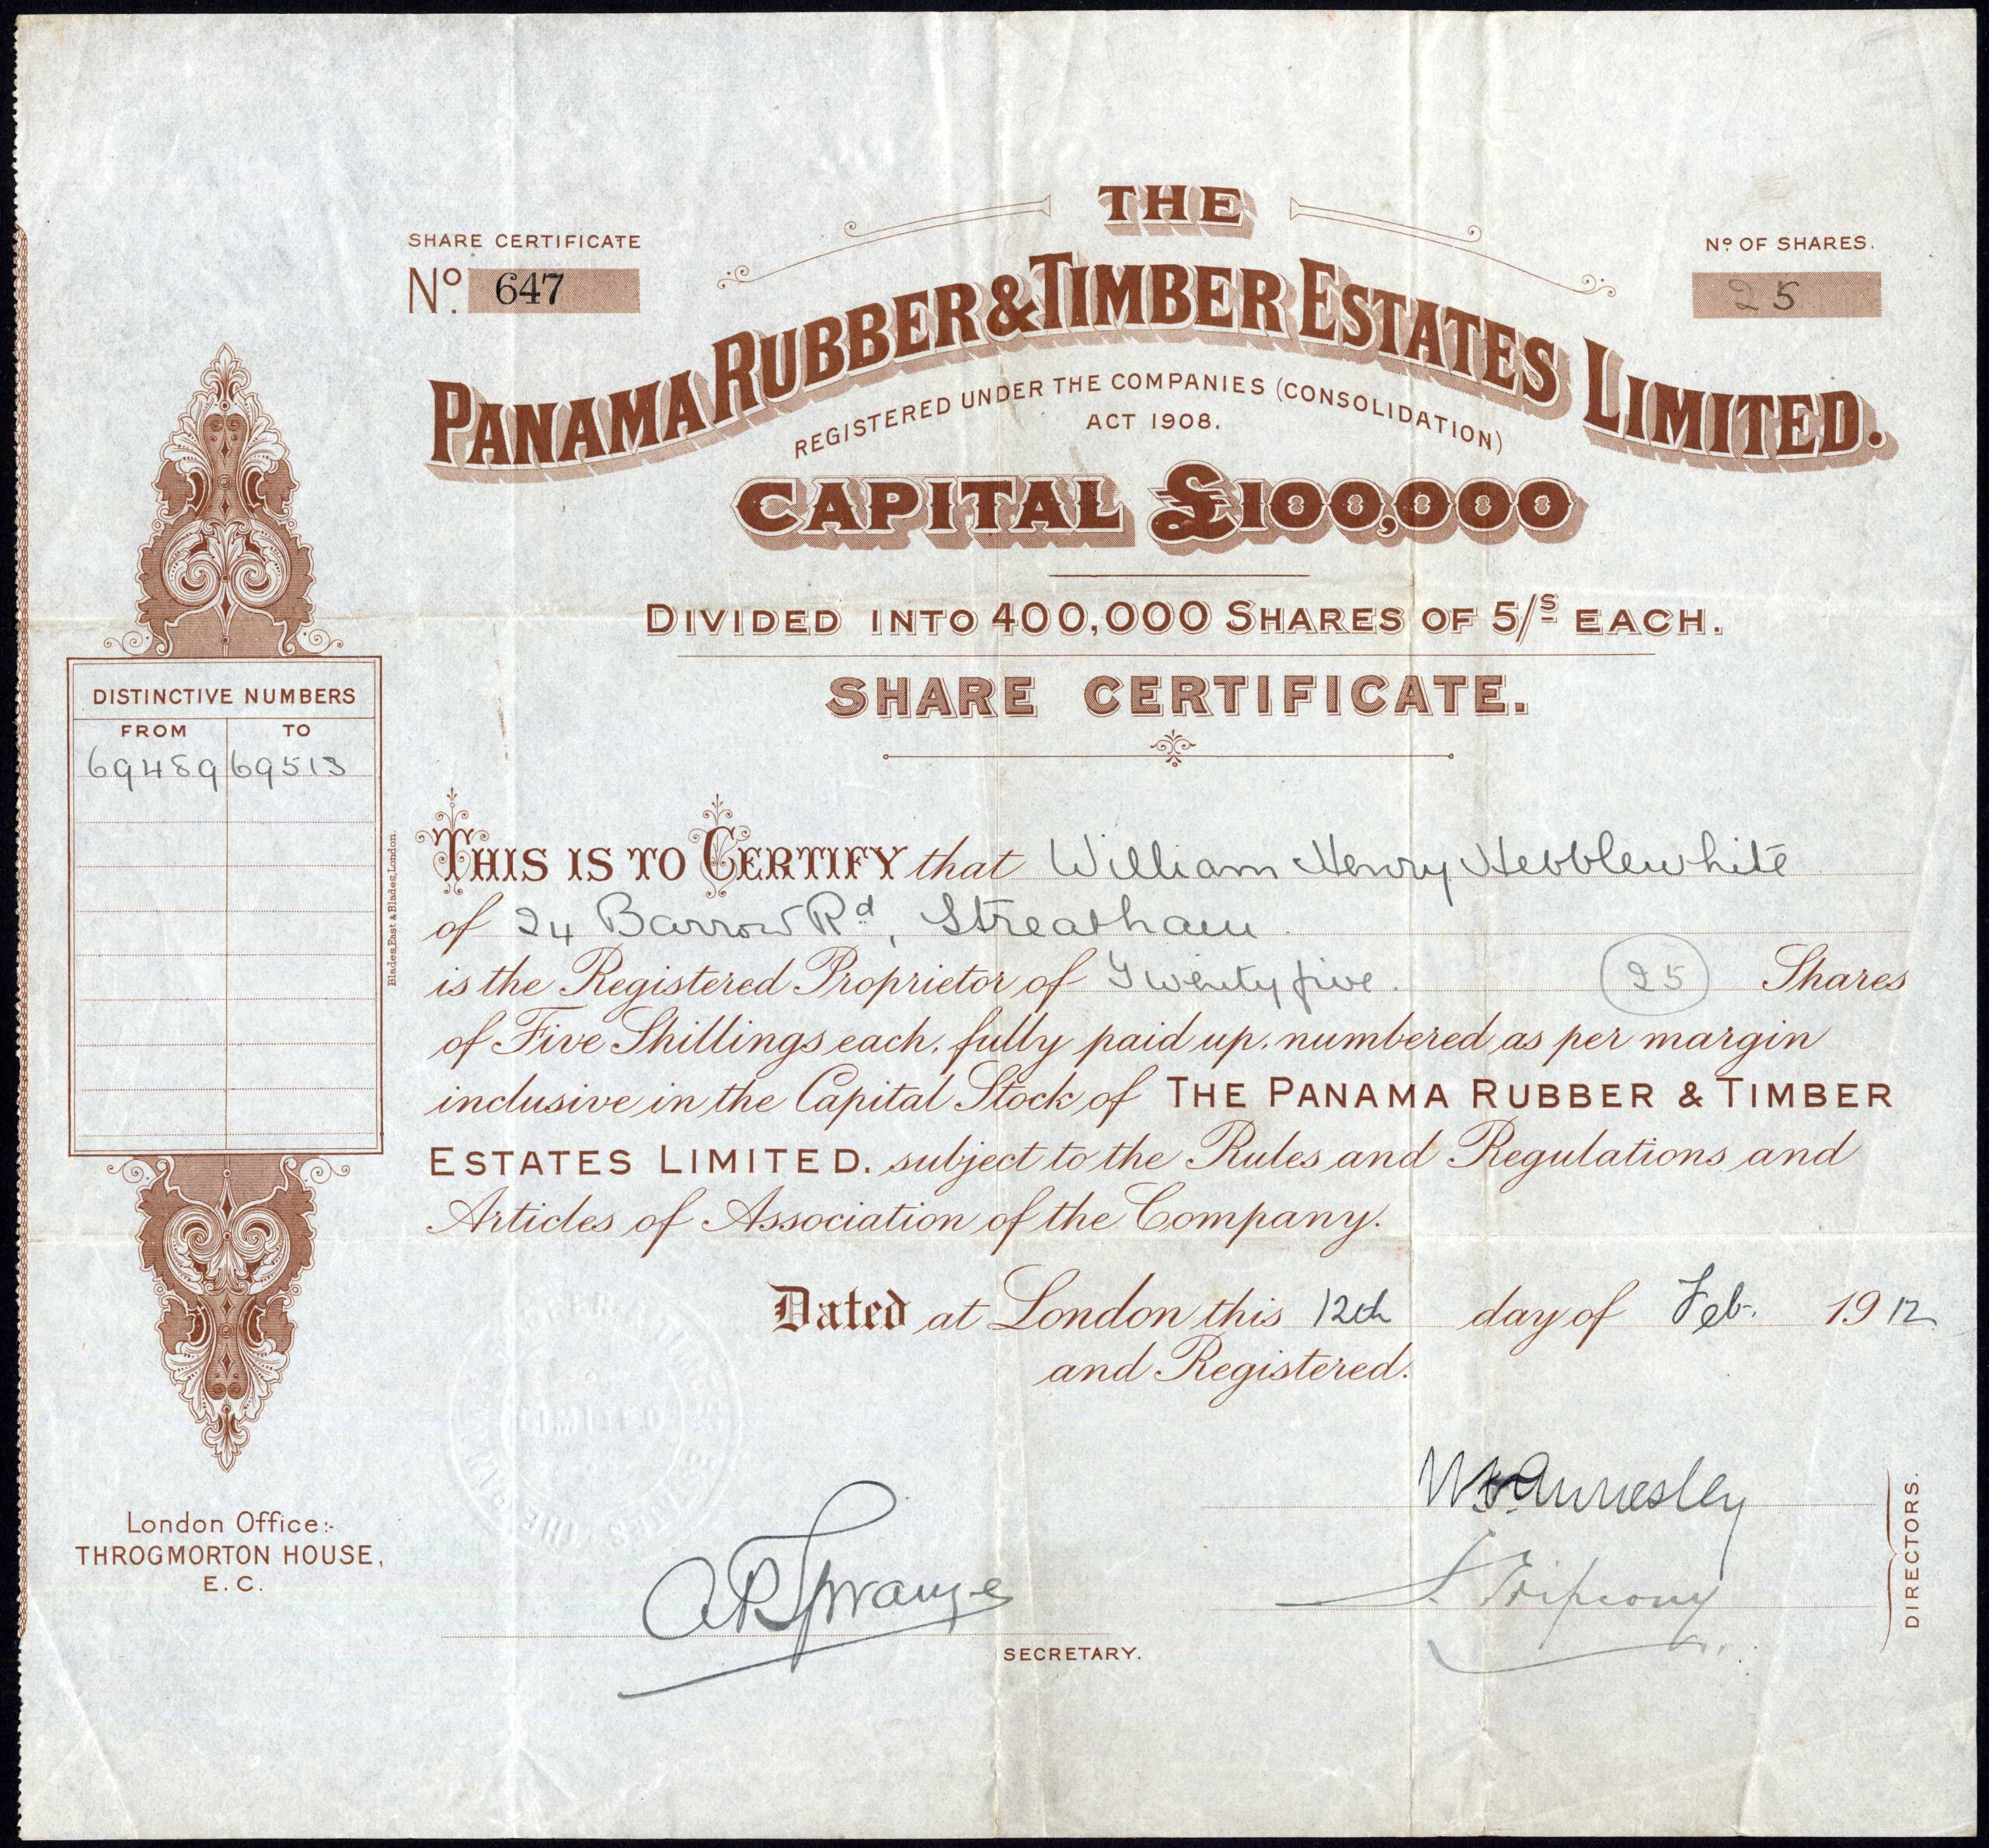 THE
PANAMA RUBBER & TIMBER ESTATES LIMITED.
REGISTERED UNDER THE COMPANIES (CONSOLIDATION)
ACT 1908.
CAPITAL £100,000
DIVIDED INTO 400,000 SHARES OF 5/s EACH.
SHARE CERTIFICATE.
SHARE CERTIFICATE
No. 647
No OF SHARES.
25
DISTINCTIVE NUMBERS
FROM TO
69489 69513
Blades, East & Blades, London.
THIS IS TO CERTIFY that William Henry Hebblewhite
of 24 Barrow Rd, Streatham
is the Registered Proprietor of Twenty five. 25 Shares
of Five Shillings each, fully paid up, numbered as per margin
inclusive in the Capital Stock of THE PANAMA RUBBER & TIMBER
ESTATES LIMITED. subject to the Rules and Regulations and
Articles of Association of the Company.
Dated at London this 12th day of Feb. 1912
and Registered.
London Office:-
THROGMORTON HOUSE,
E.C.
LIMITED
Annesley
DIRECTORS.
SECRETARY.